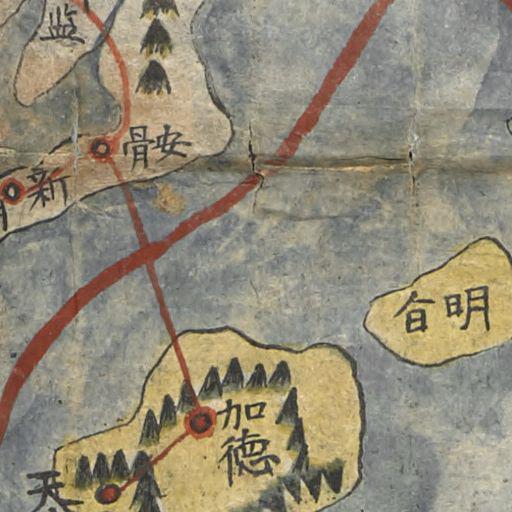 監
安骨
新
明旨
加德
天